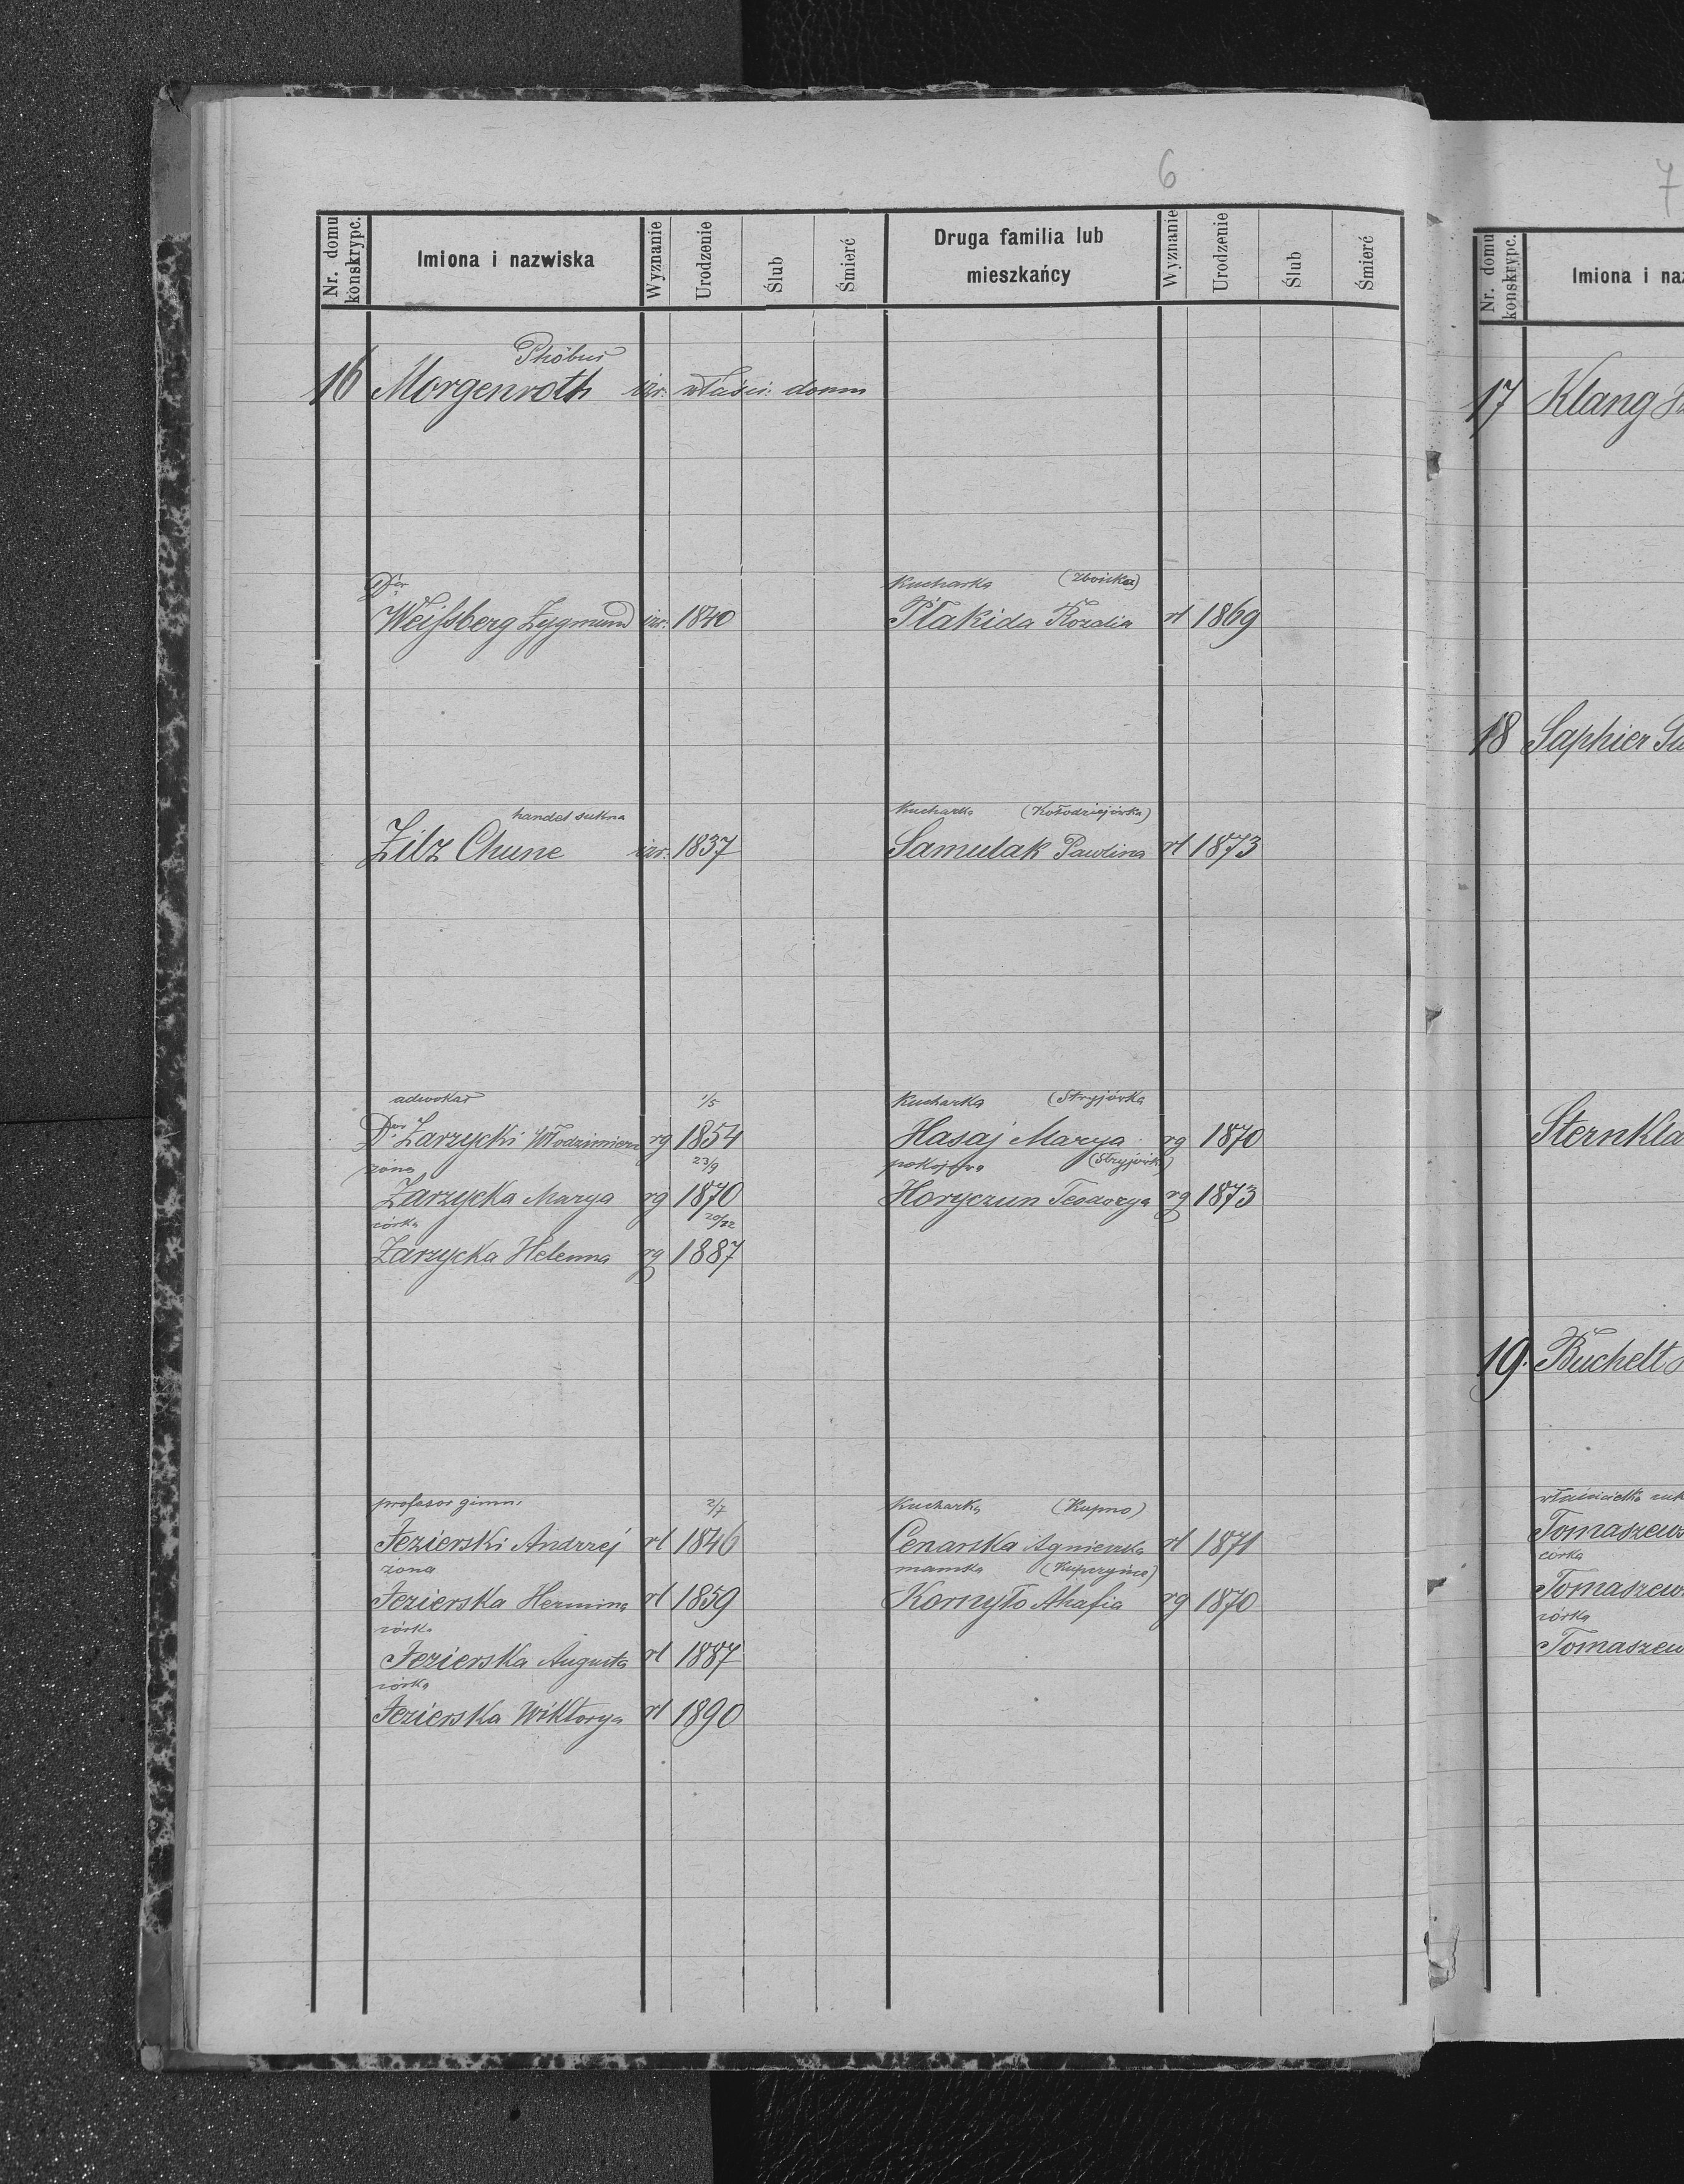 6
Nr. domu konskrypc. Imiona i nazwiska Wyznanie Urodzenie Ślub Śmierć Druga familia lub mieszkańcy Wyznanie Urodzenie Ślub Śmierć
Phöbus
16 Morgenroth izr. właści: domu
Kucharka (Zboiska)
Weissberg Zygmund izr. 1840 Płakida Rozalia rl 1869
handel sukna Kucharka (Kołodziejówka)
Zilz Chune izr. 1837 Samulak Pawlina rl 1873
adwokat 1/5 Kucharka (Stryjówka
Dr Zarzycki Włodzimierz rg 1854 Hasaj Marya rg 1870
żona 23/9 pokojowa (Stryjówka)
Zarzycka Marya rg 1870 Horyczun Teodozya rg 1873
córka
Zarzycka Helenna rg 1887
profesor gimn. 2/7 Kucharka (Kupno)
Jezierski Andrzej rl 1846 Cenarska Agnieszka rl 1871
żona mamka
Jezierska Hermina rl 1859 Kornyło Ahafia rg 1870
córka
Jezierska Augusta rl 1887
córka
Jezierska Wiktorya rl 1890
7
Nr. domu konskrypc. Imiona i naz
17 Klang
18 Saphier
Sternkla
19. Buchelt
Tomaszews
córka
Tomaszew
córka
Tomaszew